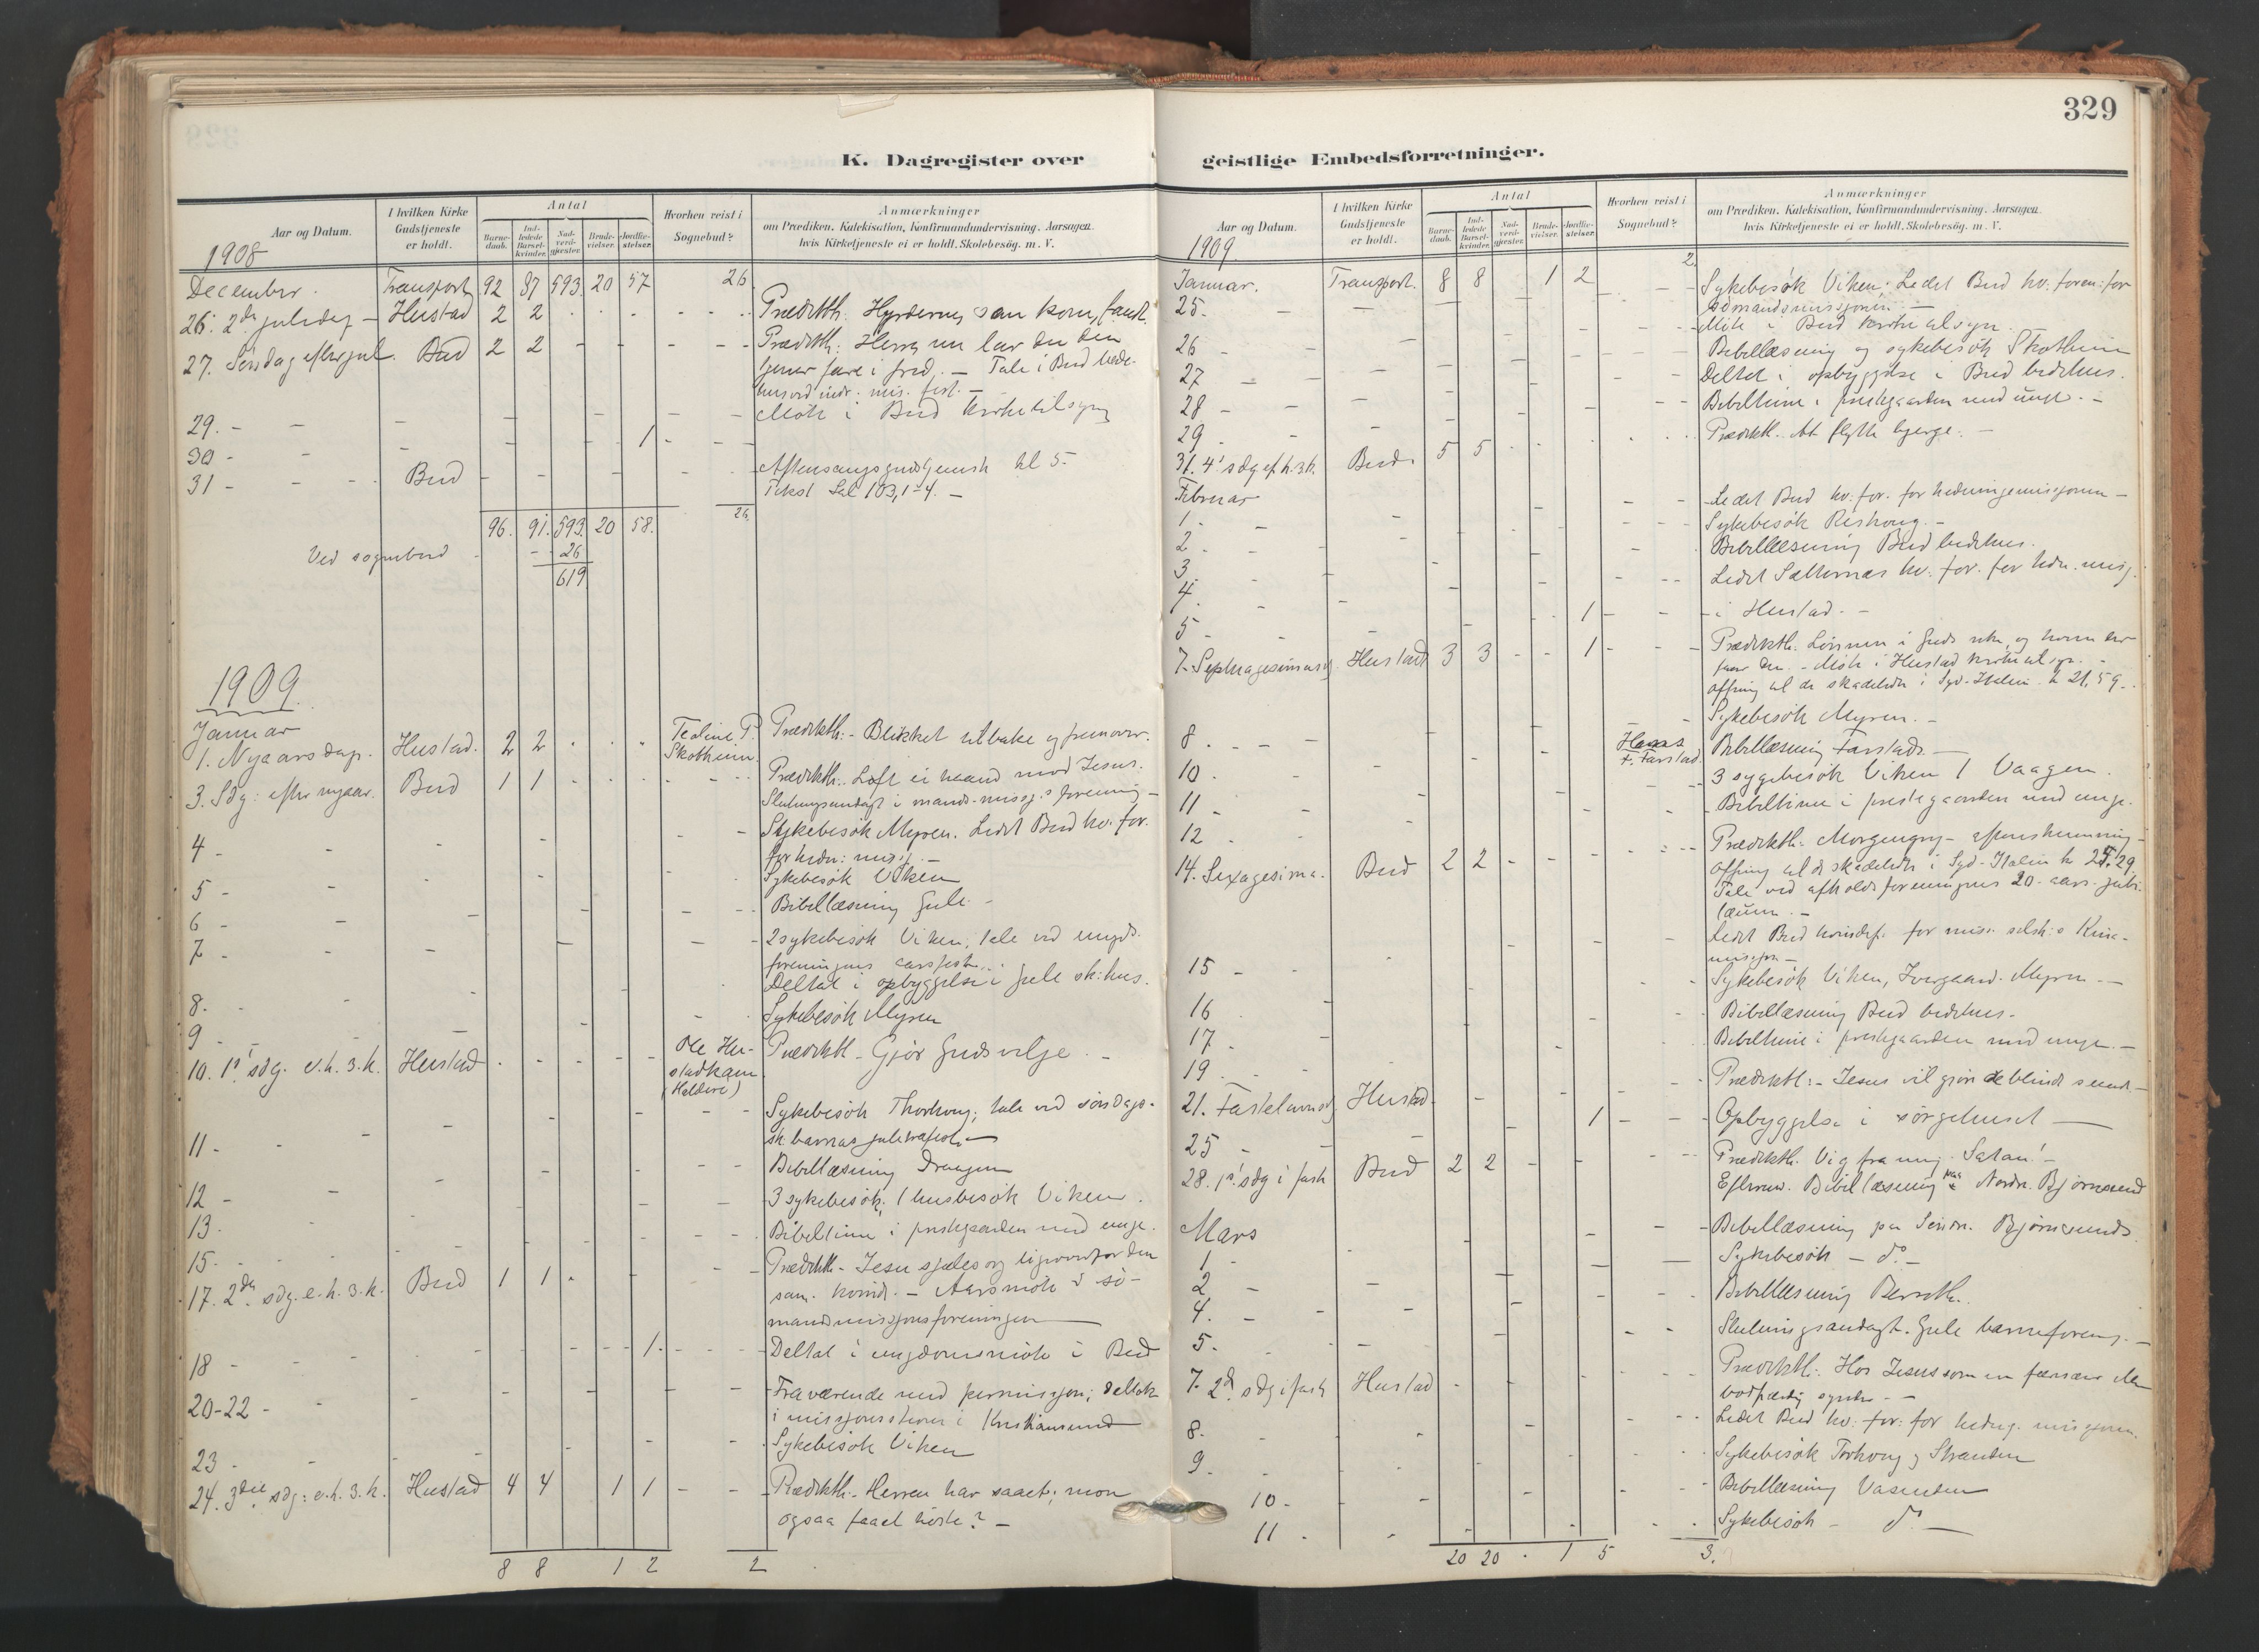 329
K. Dagregister over
geistlige Embedsforretninger.
Aar og Datum.
I hvilken Kirke Gudstjeneste er holdt.
Antal
Barne-daab.
Ind-ledede Barsel-kvinder.
Nad-verd-gjæster.
Brude-vielser.
Jordfæ-stelser.
Hvorhen reist i Sognebud?
Anmærkninger
om Prædiken. Katekisation, Konfirmandundervisning. Aarsagen.
hvis Kirketjeneste ei er holdt. Skolebesøg. m. V.
1908
December. Transport 92 87 593 20 57 26
26. 2den juledag - Hustad 2 2 Prædikth: Hyrderne, som kom, fandt.
27. Søndag efter jul. Bud 2 2 Prædikth: Herre nu lar du din
tjener fare i fred. - Tale i Bud bede-
hus ved indr. mis. fest. -
29. - Møte i Bud kirketilsyn
30 - 1
31 - Bud Aftensangsgudstjeneste kl 5.
Tekst Sal 103, 1-4. -
96. 91. 593. 20 58. 26.
Ved sognebud - 26
619
1909.
Januar
1. Nyaarsdag. Hustad. 2 2 Teoline P. Skotheim. Prædikth: - Blikket tilbake og fremover.
3. Sdg: efter nyaar. Bud 1 1 Prædikth. Løft ei haand mod Jesus.
Slutningsandagt i mands-missj.s forening -
4 - Sykebesøk Myren. Ledet Bud kv. for.
for hedn: missj. -
5 - Sykebesøk Viken
6 - Bibellæsning Gule -
7 - 2 sykebesøk Viken; tale ved ungds.
foreningens aarsfest.
8. Deltat i opbyggelse i Gule sk: hus.
9 - Sykebesøk Myren
10. 1ste sdg. e.h.3.k. Hustad Ole Hu-stadkam (Kaldere) Prædikth - Gjør Guds vilje. -
11 - Sykebesøk Thorhoug; tale ved søndags-
sk: barnas juletræfest. -
12 - Bibellæsning Draagen
13. 3 sykebesøk, 1 husbesøk Viken.
15. Bibeltime i prestegaarden med unge.
17. 2den sdg. e.h.3.k. Bud 1 1 Prædikth - Jesu sjælesorg likeoverfor den
sam. kvinde. - Aarsmøte i sø-
mandsmissjonsforeningen
18 - 1. Deltat i ungdomsmøte i Bud
20-22 - Fraværende med permissjon; deltok
i missjonsstevne i Kristiansund
23 - Sykebesøk Viken
24. 3die sdg: e.h.3.k. Hustad 4 4 1 1 Prædikth - Herren har saaet; mon
ogsaa faaet høste? -
8 8 1 2 2
Aar og Datum.
I hvilken Kirke Gudstjeneste er holdt.
Antal
Barne-daab.
Ind-ledede Barsel-kvinder.
Nad-verd-gjæster.
Brude-vielser.
Jordfæ-stelser.
Hvorhen reist i Sognebud?
Anmærkninger
om Prædiken. Katekisation, Konfirmandundervisning. Aarsagen.
hvis Kirketjeneste ei er holdt. Skolebesøg. m. V.
1909.
Januar. Transport. 8 8 1 2 2.
25. - Sykebesøk Viken; Ledet Bud kv. foren: for
sømandsmissjonen -
26 - Møte i Bud kirketilsyn.
27 - Bibellæsning og sykebesøk Skotheim
28 - Deltat i opbyggelse i Bud bedehus.
29 - Bibeltime i prestegaarden med unge. -
31. 4de sdg ef. h.3.k. Bud 5 5 Prædikth. At flytte bjerge. -
Februar
1 - Ledet Bud kv: for. for hedningemissjonen -
2 - Sykebesøk Rishoug -
3 - Bibellæsning Bud bedehus.
4. - Ledet Sætternæs kv: for. for hdn. missj.
5 - 1 - i Hustad. -
7. Septuagesimasdg Hustad 3 3 1 Prædikth. Lønnen i Guds rike, og hvem der
faar den. - Møte i Hustad kirketilsyn. -
Offring til de skadelidte i Syd-Italien kr 21,59.
8. - Sykebesøk Myren. -
10. Hans F. Farstad. Bibellæsning Farstad. -
11 - 3 sygebesøk Viken / Vaagen.
12 - Bibeltime i prestegaarden med unge.
14. Sexagesima. Bud 2 2 Prædikth. Morgengry - aftenskumring -
Offring til de skadelidte i Syd-Italien kr 25,29
Tale ved afholdsforeningens 20-aars-jubi-
læum. -
15 - Ledet Bud kvindef. for miss. selsk:s Kina-
missjon -
16 Sykebesøk Viken, Ivergaard. Myren -
17 - Bibellæsning Bud bedehus -
19 - Bibeltime i prestegaarden med unge. -
21. Fastelavnsdg Hustad Prædikth: - Jesus vil gjøre de blinde seende -
25 - 1 Opbyggelse i sørgehuset -
28. 1ste sdg i faste Bud 2 2 Prædikth. Vig fra mig Satan! -
Efterm. Bibellæsning paa Nordr. Bjørnsund
Mars
1 - Bibellæsning paa Søndr. Bjørnsund.
2 - Sykebesøk - do -
4. - Bibellæsning Berseth.
5. Slutningsandagt. Gule barneforeng. -
7. 2den sdg i faste Hustad Prædikth: Hos Jesus som en
bodfærdig synder -
8. Ledet Bud kv: for: for hedng. missjonen.
9. Sykebesøk Torhoug, Stranden
10 - Bibellæsning Vasenden
11 - Sykebesøk - do -
20 20 1 5 3.